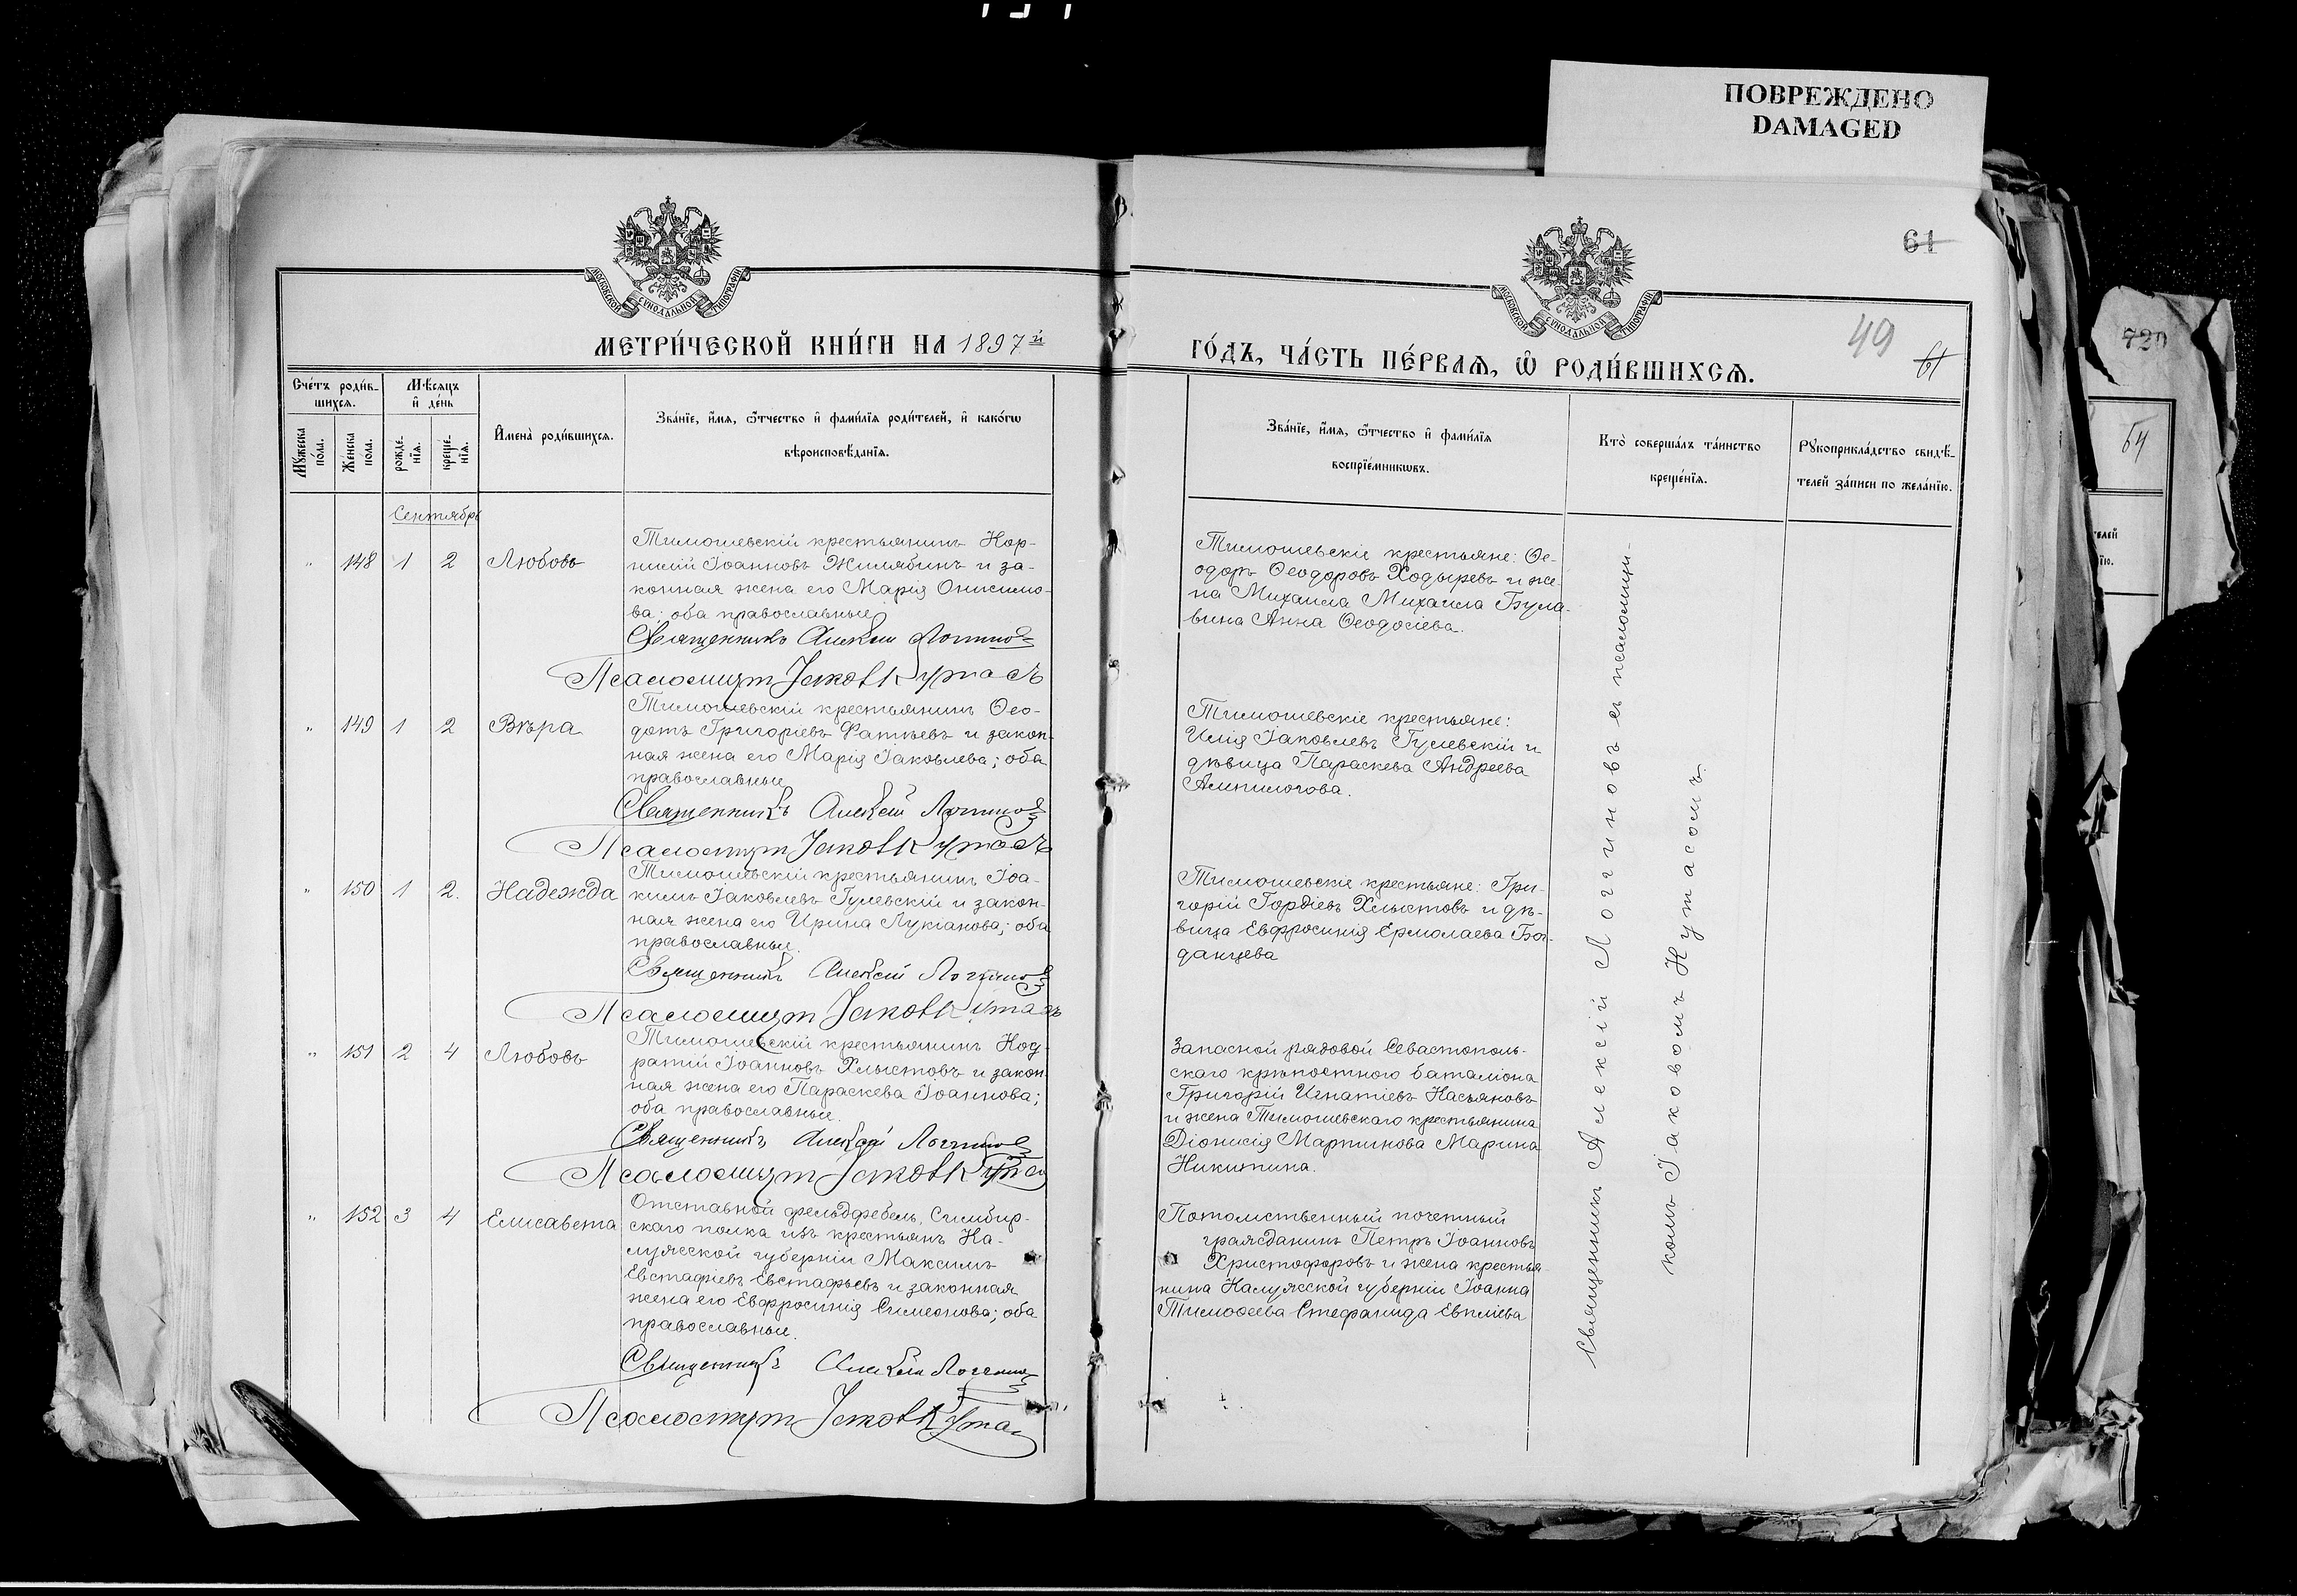 ПОВРЕЖДЕНО
DAMAGED
61
МОСКОВСКОЙ СУНОДАЛЬНОЙ ТИПОГРАФІИ
МОСКОВСКОЙ СУНОДАЛЬНОЙ ТИПОГРАФІИ
МЕТРИ́ЧЕСКОЙ КНИ́ГИ НА 1897й
ГО́ДЪ, ЧА́СТЬ ПЕ́РВАѦ, Ѽ РОДИ́ВШИХСѦ.
49
61
Сче́тъ роди́в-
шихсѧ.
Мѣсѧцъ
и҆ де́нь
Мꙋ́жеска
по́ла.
Же́нска
пола.
рожде-
нїѧ.
креще́-
нїѧ.
И҆мена̀ роди́вшихсѧ.
Зва́нїе, и҆́мѧ, ѻ҆́тчество и҆ фами́лїѧ роди́телей, и҆ како́гѡ
вѣроисповѣ́данїѧ.
Зва́нїе, и҆́мѧ, ѻ҆́тчество и҆ фами́лїѧ
воспрїе́мникѡвъ.
Кто̀ соверша́лъ та́инство
креще́нїѧ.
Рꙋкоприкла́дство свидѣ́-
телей за́писи по жела́нїю.
Сентябрь
" 148 1 2 Любовь
Тимошевскій крестьянинъ Кор-
нилій Іоанновъ Жилябинъ и за-
конная жена его Марія Онисимо-
ва; оба православные
Священникъ Алексій Логгинов
Псаломщик Іаков Кутас
Тимошевскіе крестьяне: Ѳе-
одоръ Ѳеодоровъ Ходыревъ и же
на Михаила Михаила Була-
вина Анна Ѳеодосіева.
" 149 1 2 Вѣра
Тимошевскій крестьянинъ Ѳео-
дотъ Григоріевъ Фатѣевъ и закон
ная жена его Марія Іаковлева; оба
православные
Священникъ Алексій Логгинов
Псаломщик Іаков Кутас
Тимошевскіе крестьяне:
Илія Іаковлевъ Гулевскій и
дѣвица Параскева Андреева
Ампилогова.
" 150 1 2. Надежда
Тимошевскій крестьянинъ Іоа-
кимъ Іаковлевъ Гулевскій и закон-
ная жена его Ирина Лукіанова; оба
православные.
Священникъ Алексій Логгинов
Псаломщик Іаков Кутас
Тимошевскіе крестьяне: Гри-
горій Гордіевъ Хлыстовъ и дѣ-
вица Евфросинія Ермолаева Бог-
данцева
" 151 2 4 Любовь
Тимошевскій крестьянинъ Код-
ратій Іоанновъ Хлыстовъ и закон
ная жена его Параскева Іоаннова;
оба православные
Священникъ Алексій Логгинов
Псаломщик Іаков Кутас
Запасной рядовой Севастополь-
скаго крѣпостного баталіона
Григорій Игнатіевъ Касьяновъ
и жена Тимошевскаго крестьянина
Діонисія Мартинова Марина
Никитина.
" 152 3 4 Елисавета
Отставной фельдфебель, Симбир-
скаго полка изъ крестьянъ Ка-
лужской губерніи Максимъ
Евстафіевъ Евстафьевъ и законная
жена его Евфросинія Симеонова; оба
православные.
Священникъ Алексій Логгинов
Псаломщик Іаков Кутас
Потомственный почетный
гражданинъ Петръ Іоанновъ
Христофоровъ и жена крестья
нина Калужской губерніи Іоанна
Тимоѳеева Стефанида Евпліева
Священникъ Алексій Логгиновъ съ псаломщи-
комъ Іаковомъ Кутасомъ.
720
64
телей
їю.